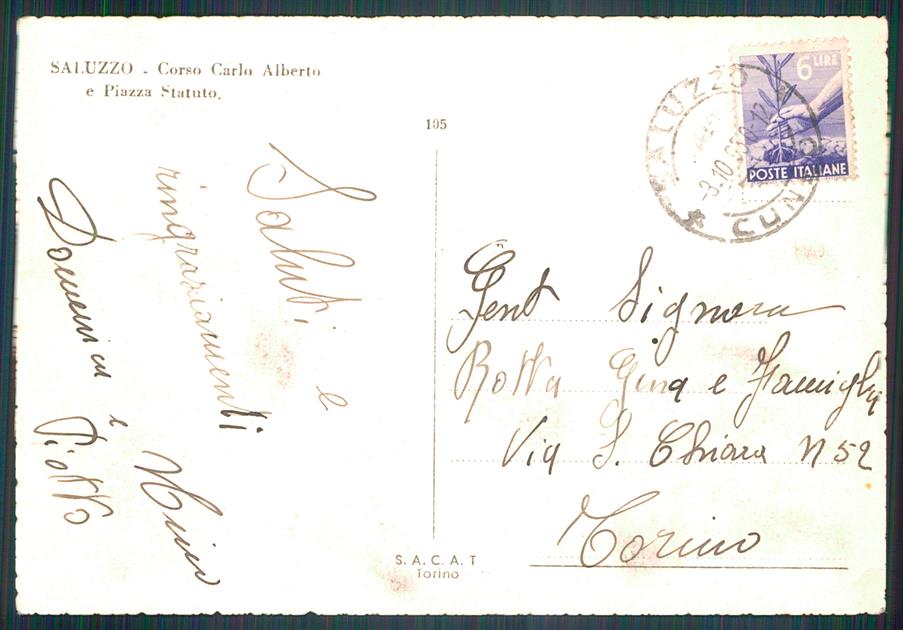 SALUZZO - Corso Carlo Alberto
e Piazza Statuto.
105
6 LIRE
POSTE ITALIANE
SALUZZO
CUNEO
Saluti e
ringraziamenti
Domenica e
Piotto
Gent Signora
Rotta Gina e Famiglia
Via S. Chiara N 52
Torino
S.A.C.A.T
Torino